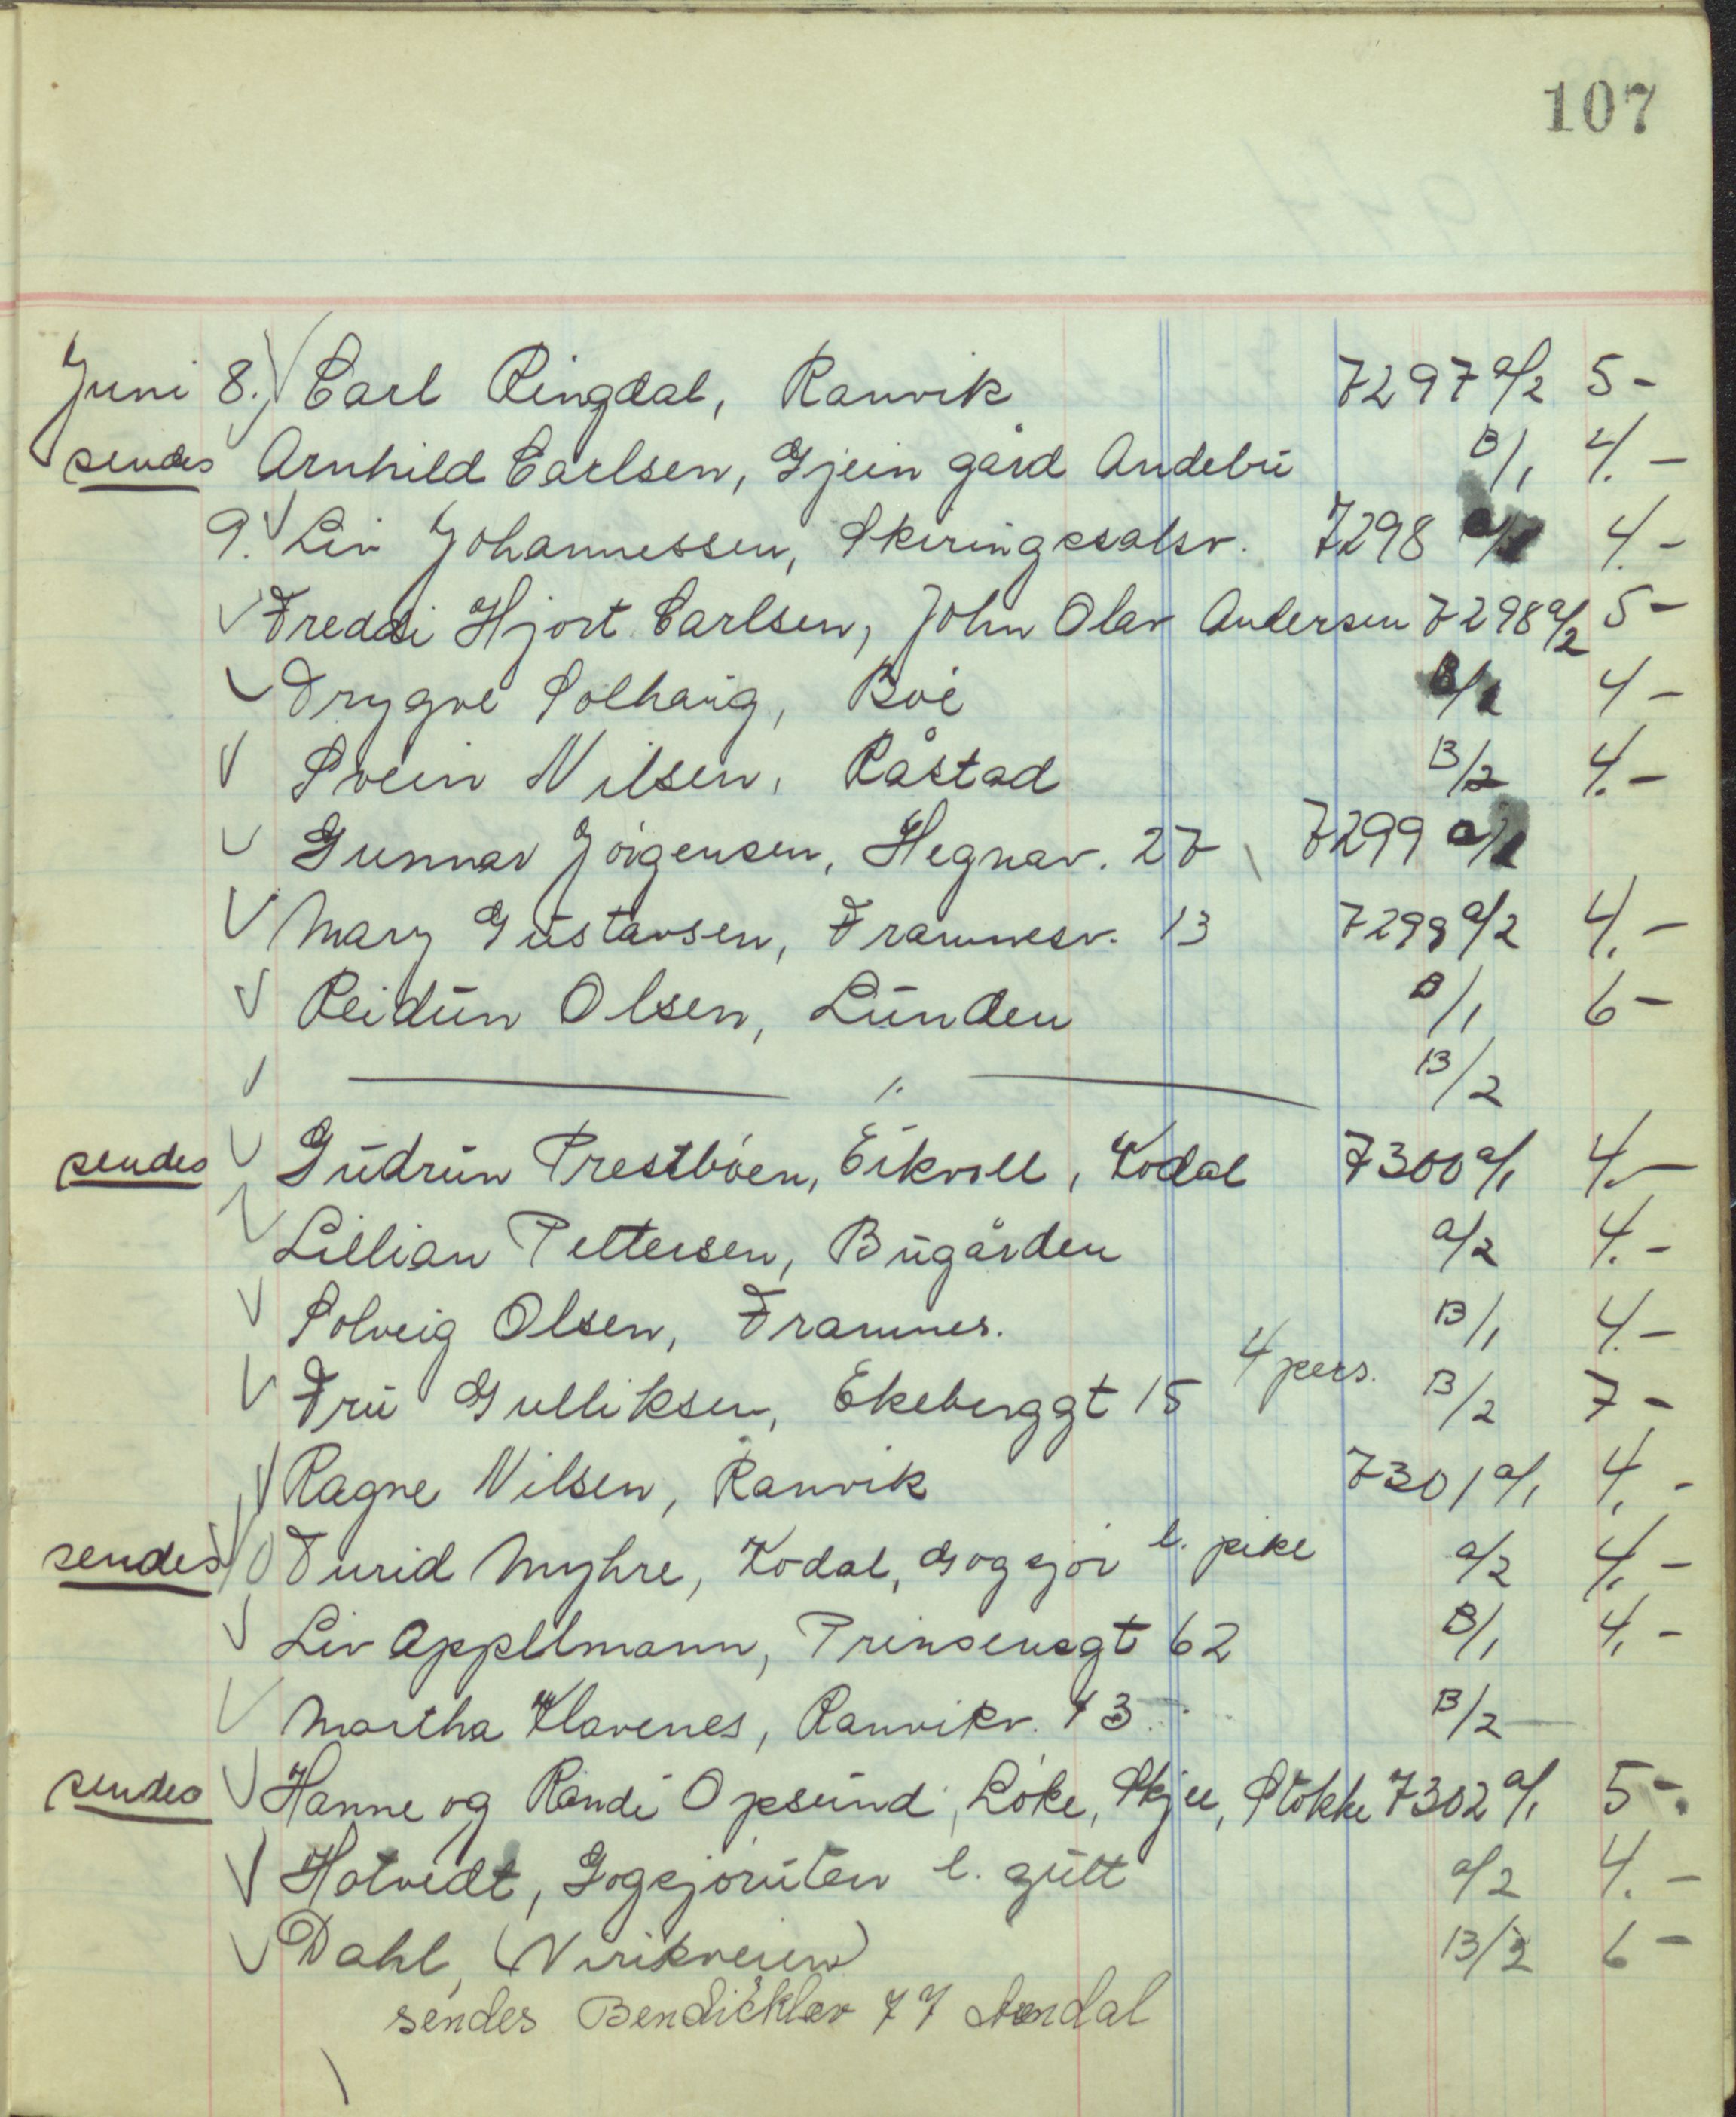 107
Juni 8. Carl Ringdal, Ranvik 7297 a/2 5-
sendes Arnhild Carlsen, Gjein gård Andebu B/1 4.-
9. Liv Johannessen, Skiringssalsv. 7298 a/1 4.-
Freddi Hjort Carlsen, John Olav Andersen 7298 a/2 5-
Trygve Solhaug, Bøe B/1 4-
Svein Nilsen, Råstad B/2 4.-
Gunnar Jörgensen, Hegnav. 27 7299 a/1
Mary Gustavsen, Framnesv. 13 7299 a/2 4.-
Reidun Olsen, Lunden B/1 6-
—— " —— B/2
sendes Gudrun Prestbøen, Eikvoll, Kodal 7300 a/1 4.-
Lillian Pettersen, Bugården a/2 4.-
Solveig Olsen, Framnes. B/1 4.-
Fru Gulliksen, Ekeberggt 15 4 pers. B/2 7-
Ragne Nilsen, Ranvik 7301 a/1 4.-
sendes Turid Myhre, Kodal, Gogsjø l. pike a/2 4.-
Liv Appellmann, Prinsensgt 62 B/1 4.-
Martha Klavenes, Ranvikv. 43 B/2
sendes Hanne og Randi Opsund, Løke, Skjee, Stokke 7302 a/1 5-
Hotvedt, Gogsjøruten l. gutt a/2 4.-
Dahl, (Nirikveien) B/2 6-
sendes Bendiksklev 77 Arendal